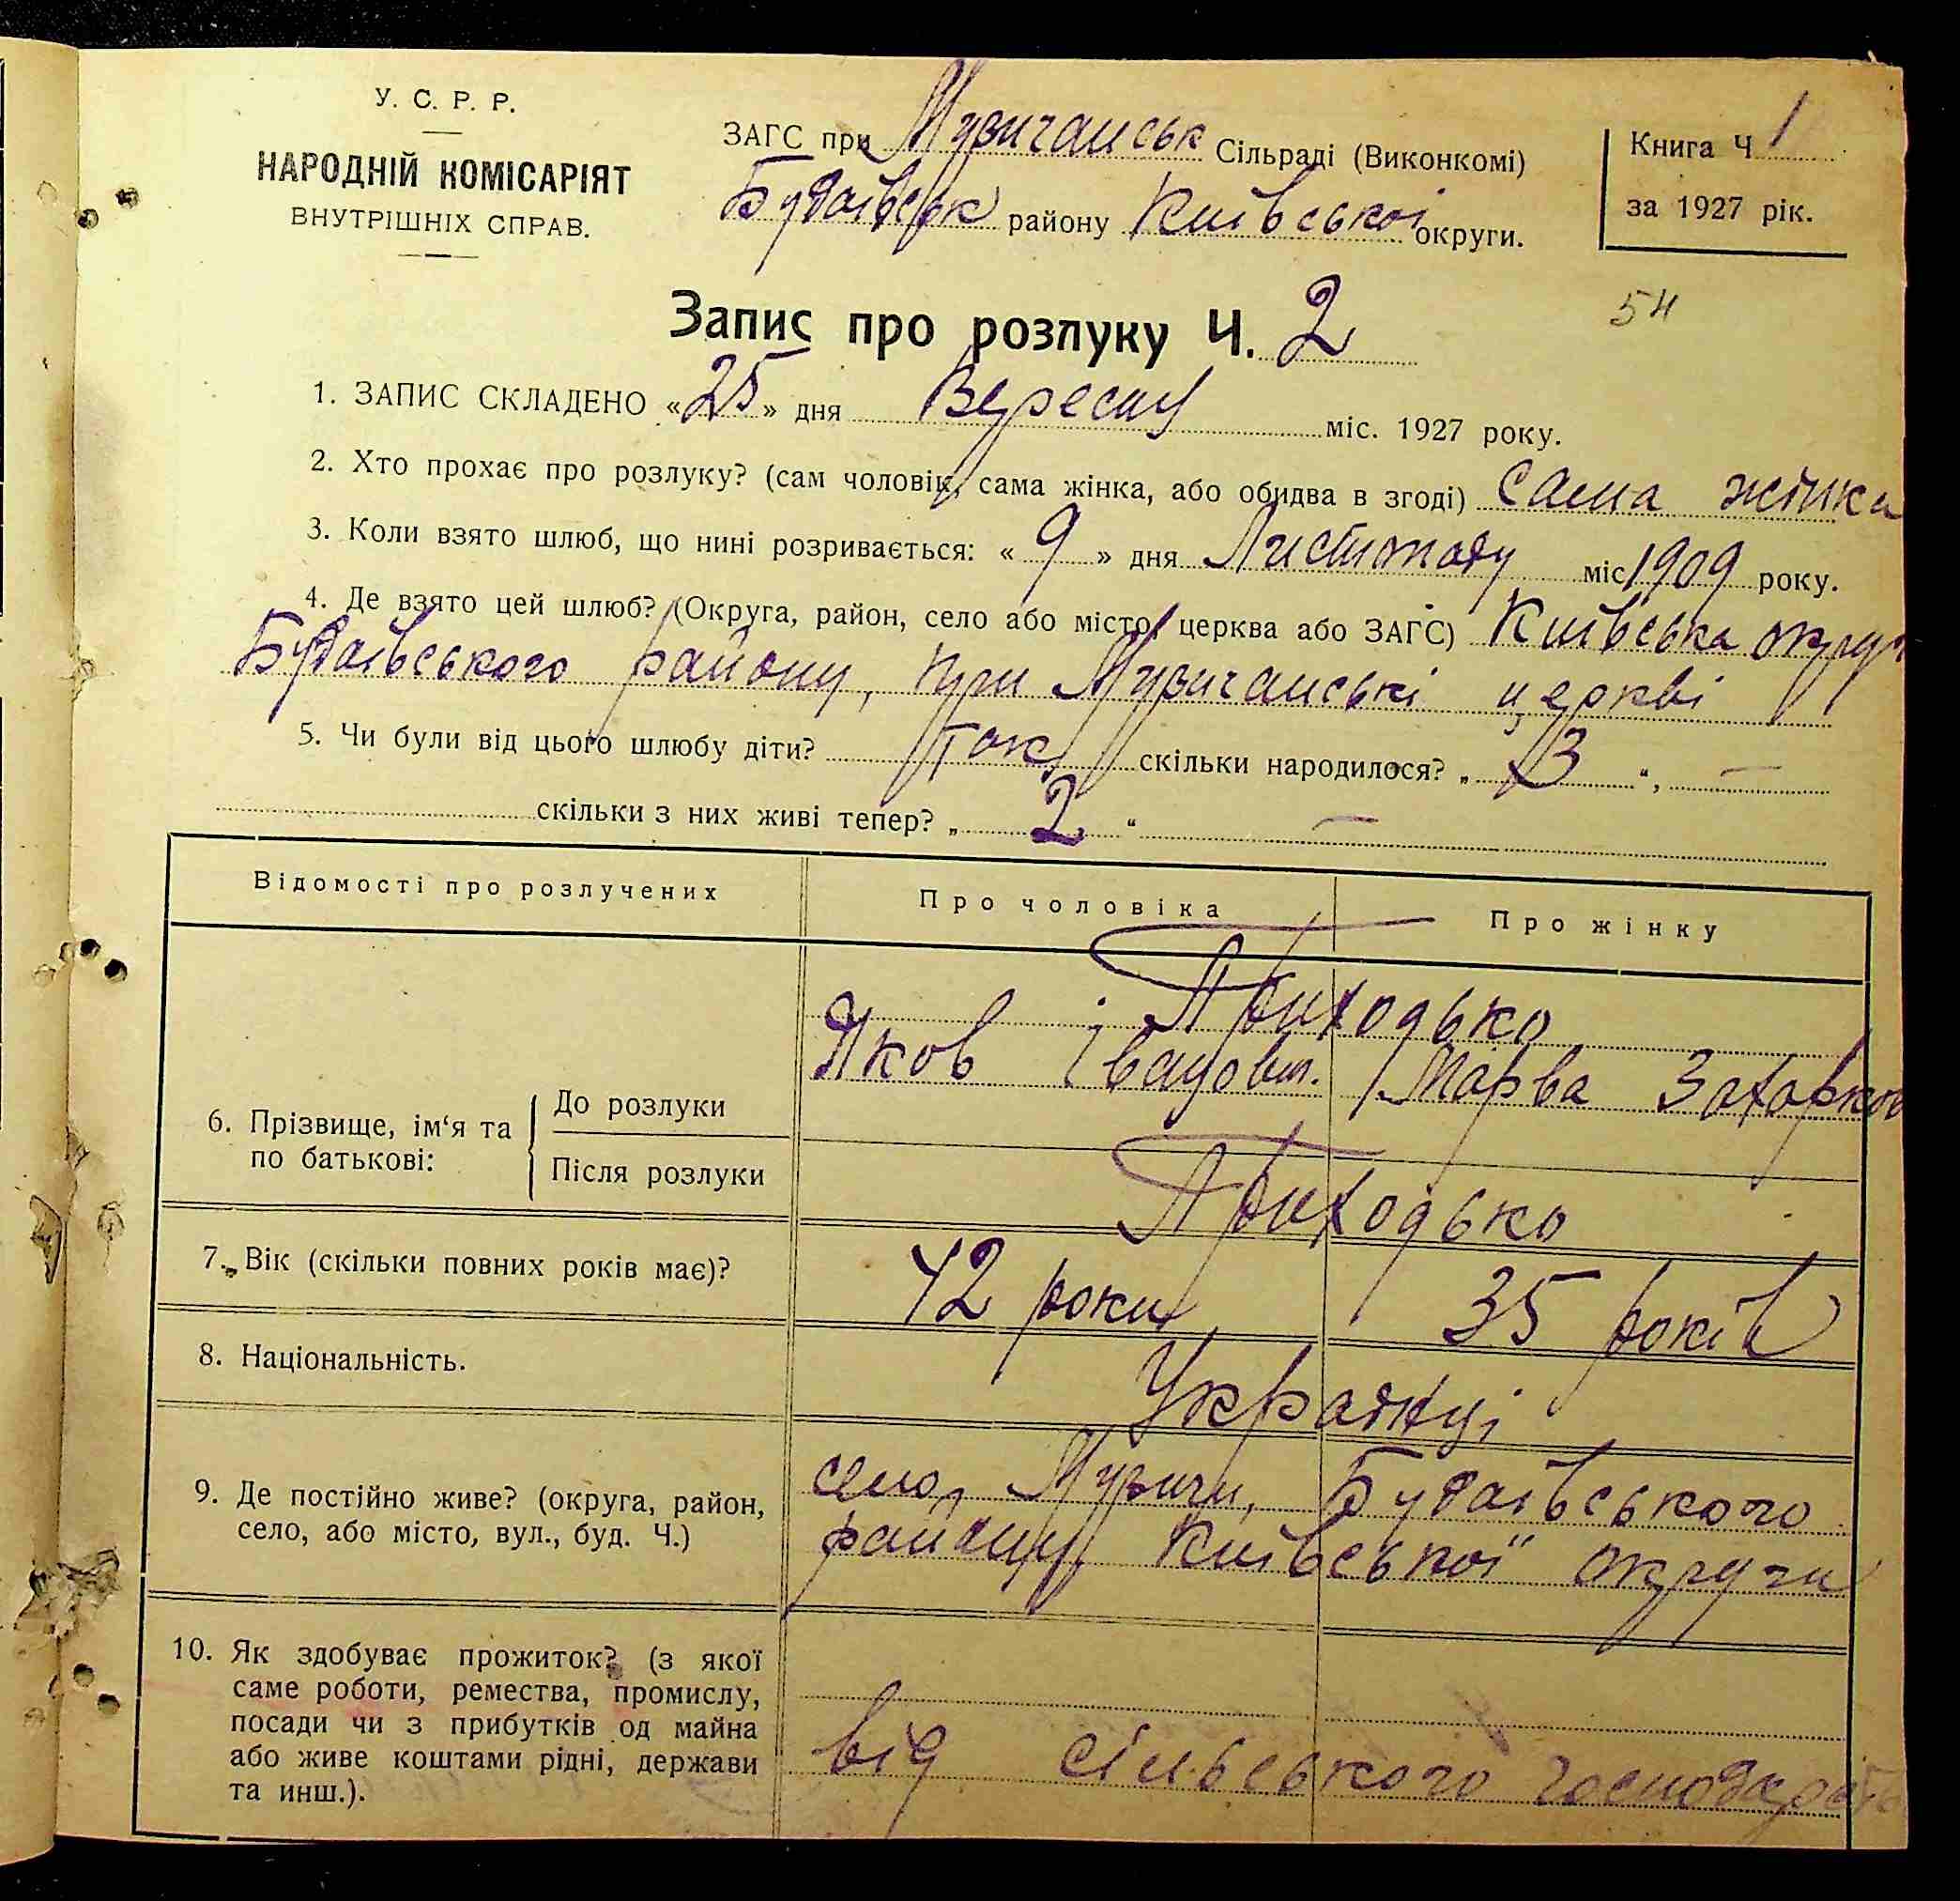 У. С. Р. Р.
НАРОДНІЙ КОМІСАРІЯТ
ВНУТРІШНІХ СПРАВ.
ЗАГС при Музичанськ Сільраді (Виконкомі)
Будаївськ району Київської округи.
Книга Ч 1
за 1927 рік.
54
Запис про розлуку Ч. 2
1. ЗАПИС СКЛАДЕНО «25» дня Вересну міс. 1927 року.
2. Хто прохає про розлуку? (сам чоловік, сама жінка, або обидва в згоді) Сама жінка
3. Коли взято шлюб, що нині розривається: «9» дня Листопаду міс 1909 року.
4. Де взято цей шлюб? (Округа, район, село або місто, церква або ЗАГС) Київська округа
Будаївського району, при Музичанські церкві
5. Чи були від цього шлюбу діти? Так, скільки народилося? „ 3 “, —
скільки з них живі тепер? „ 2 “ —
Відомості про розлучених Про чоловіка Про жінку
6. Прізвище, ім‘я та по батькові:
До розлуки
Приходько
Яков Івановт. Марва Захарков
Після розлуки
Приходько
7. Вік (скільки повних років має)? 42 роки 35 років
8. Національність. Українці
9. Де постійно живе? (округа, район, село, або місто, вул., буд. Ч.)
село, Музичи, Будаївського
району, Київської округи
10. Як здобуває прожиток? (з якої
саме роботи, ремества, промислу,
посади чи з прибутків од майна
або живе коштами рідні, держави
та инш.).
від сільського господарства